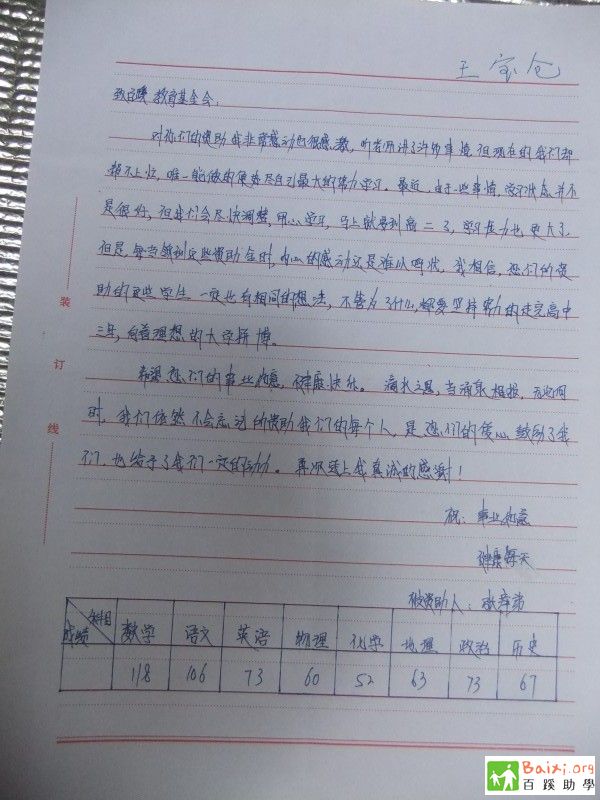 王宝仓
致百暖教育基金会:
对你们的资助我非常感动也很感激,听老师讲了许多事情,但现在的我们却
帮不上忙,唯一能做的便是尽自己最大的努力学习。最近,由于一些事情,学习状态并不
是很好,但我们会尽快调整,用心学习,马上就要到高二了,学习压力也更大了。
但是,每当领到这些资助金时,内心的感动还是难以名状。我相信,您们的资
助的这些学生一定也有相同的想法,不管为了什么,都要坚持努力的走完高中
三年,向着理想的大学拼博。
希望您们的事业如意,健康快乐。滴水之恩,当涌泉相报,无论何
时,我们依然不会忘记的资助我们的每个人,是您们的爱心鼓励了我
们,也给予了我们一定的动力。再次送上我真诚的感谢!
祝:事业如意
健康每天
被资助人:
科目
成绩
数学 语文 英语 物理 化学 地理 政治 历史
118 106 73 60 52 63 73 67
装
订
线
Baixi.org
百蹊助學